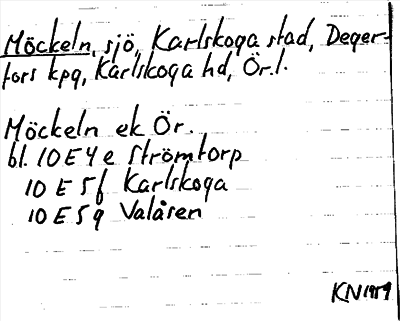 Möckeln, sjö, Karlskoga stad, Deger-
fors kpg, Karlskoga hd, Ör.l.
Möckeln ek Ör.
bl. 10 E 4 e Strömtorp
10 E 5 f Karlskoga
10 E 5 g Valåsen
KN 1959